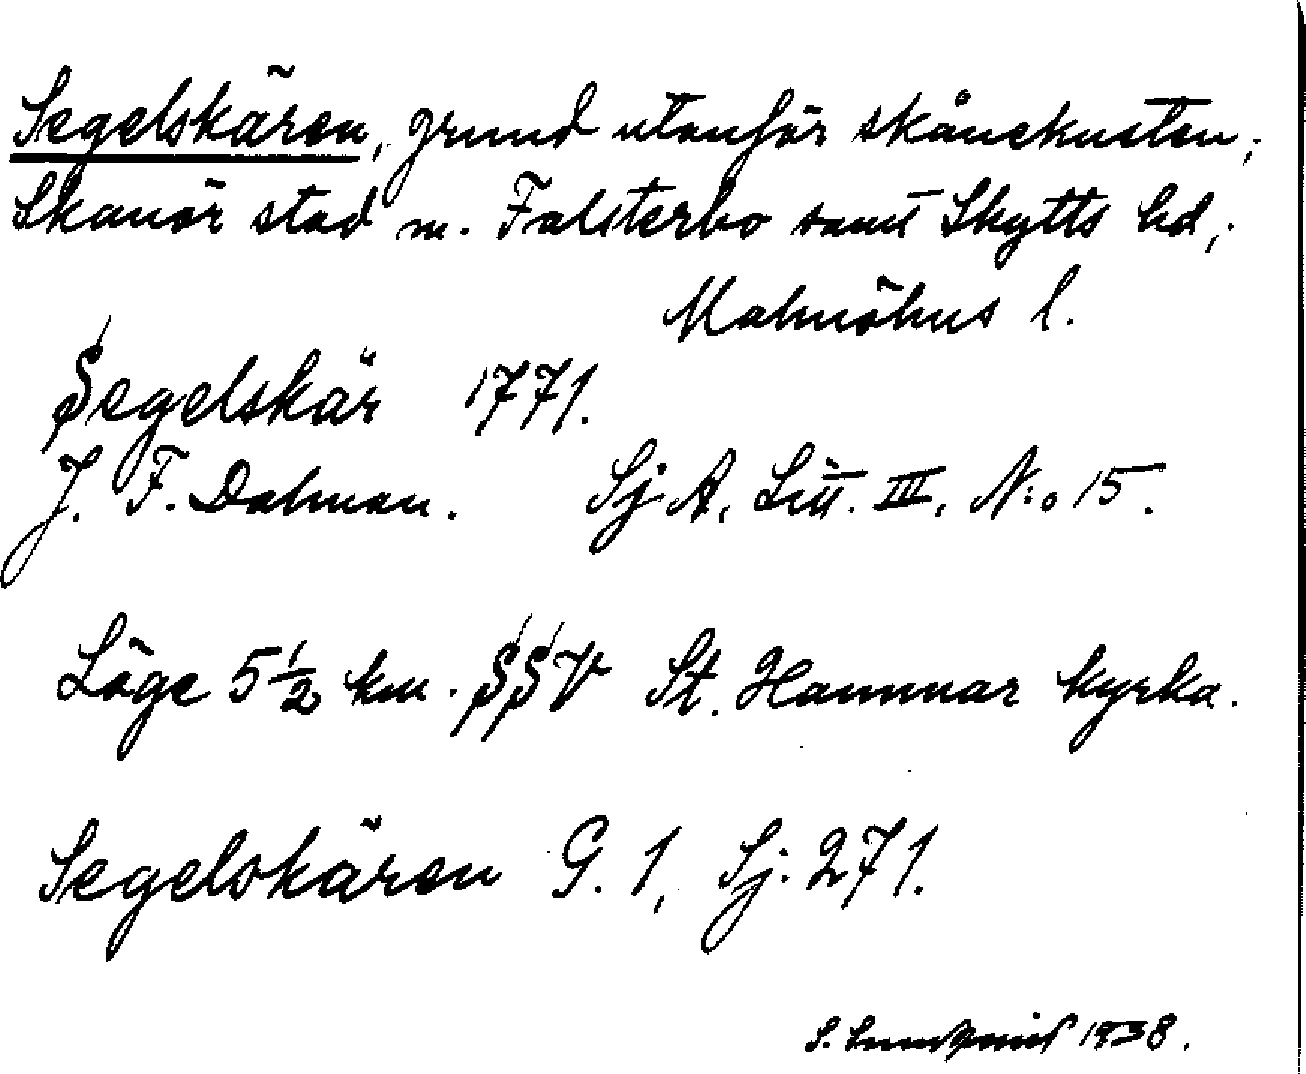 Segelskären, grund utanför skånekusten;
Skanör stad m. Falsterbo samt Skytts hd,
Malmöhus l.
Segelskär 1771.
J. F. Dalman. Sj A, Litt. III, N:o 15.
Läge 5 1/2 km. SSV St. Hammar kyrka.
Segelskären G. 1, Sj. 271.
S. 1938.